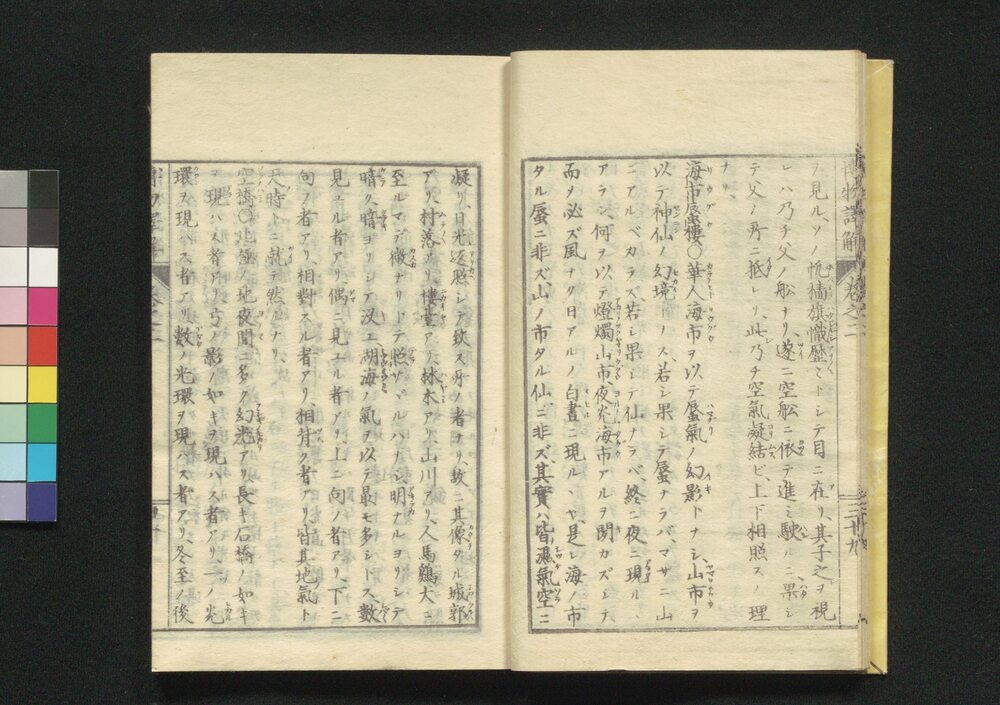 ヲ見ル、ソノ帆檣旗幟歷々トシテ目ニ在リ、其子之ヲ視
レハ乃チ父ノ舩ナリ、遂ニ空舩ニ依テ進ミ駛ルニ果シ
テ父ノ所ニ抵レリ、此乃チ空氣凝結ビ、上下相照スノ理
ナリ、
海市蜃樓〇華人海市ヲ以テ蜃氣ノ幻影トナシ、山市ヲ
以テ神仙ノ幻境トナス、若シ果シテ蜃ナラバ、マサニ山
ニアルベカラズ若シ果シテ仙ナラバ、終ニ夜ニ現ルヽ
アラン、何ヲ以テ燈燭山市、夜光海市アルヲ聞カズシテ
而ヲ必ズ風ナク日アルノ白晝ニ現ルヽヤ、是レ海ノ市
タル蜃ニ非ズ、山ノ市タル仙ニ非ズ、其實ハ皆濕氣空ニ
凝リ、日光返照シテ致ス所ノ者ナリ、故ニ其像タル城郭
アリ、村落アリ、樓臺アリ、林木アリ、山川アリ、人馬鷄犬ニ
至ルマデ微ナリトテ照サヾルハナシ、明ナルヨリシテ
暗ク、暗ヨリシテ没ス、湖海ノ氣ヲ以テ最モ多シトス、數
見ユル者アリ偶ニ見ユル者アリ、上ニ向フ者アリ、下ニ
向フ者アリ、相對スル者アリ、相背ク者アリ、皆其地氣ト
天時トニ就テ然ルナリ、
空橋〇北極ノ地夜間ニ多ク幻光アリ長キ石橋ノ如キ
ヲ現ハス者アリ、弓ノ影ノ如キヲ現ハス者アリ、一ノ光
環ヲ現ハス者アリ、數ノ光環ヲ現ハス者アリ、冬至ノ後